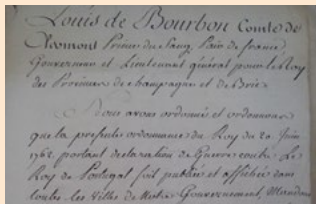 Louis de Bourbon Comte de
Clermont Prince du Sang, Pair de france,
Gouverneur et Lieutenant général pour le Roy
des Provinces de champagne et de Brie.
Nous avons ordonné et ordonnons
que la presente ordonnance du Roy du 20 Juin
1762. portant declaration de Guerre contre Le
Roy de Portugal soit publiée et affichée dans
toutes les Villes de Notre Gouvernement, Mandons